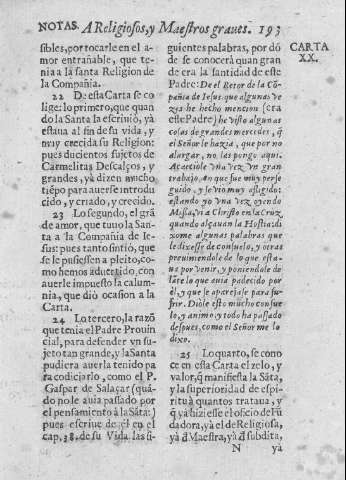 NOTAS. A Religiosos, y Maestros graues. 193
CARTA
XX.
sibles, por tocarle en el a-
mor entrañable, que te-
nia a la santa Religion de
la Compañia.
22 De esta Carta se co-
lige: lo primero, que quan
do la Santa la escriuió, yà
estaua al fin de su vida, y
muy crecida su Religion:
pues ducientos sujetos de
Carmelitas Descalços, y
grandes, yà dizen mucho
tiẽpo para auerse introdu
cido, y criado, y crecido.
23 Lo segundo, el grã
de amor, que tuuo la San-
ta a la Compañia de Ie-
sus: pues tanto sintió, que
se le pusiessen a pleito, co-
mo hemos aduertido, con
auerle impuesto la calum-
nia, que diò ocasion a la
Carta.
24 Lo tercero, la razõ
que tenia el Padre Prouin
cial, para defender vn su-
jeto tan grande, y la Santa
pudiera auerla tenido pa
ra codiciarlo, como el P.
Gaspar de Salaçar (quã-
do no le auia passado por
el pensamiento à la Sãta:)
pues escriue de él en el
cap. 38. de su Vida las si-
guientes palabras, por dõ
de se conocerà quan gran
de era la santidad de este
Padre: De el Retor de la Cõ-
pañia de Iesus que algunas ve-
zes he hecho mencion (era
este Padre) he visto algunas
cosas de grandes mercedes, q̃
el Señor le hazia, que por no
alargar, no las pongo aqui.
Acaeciòle vna vez vn gran
trabajo, en que fue muy perse
guido, y se vio muy afligido:
estando yo vna vez oyendo
Missa, vi a Christo en la Cruz,
quando alçauan la Hostia: di
xome algunas palabras que
le dixesse de consuelo, y otras
preuiniendole de lo que esta-
ua por venir, y poniendole de
lãte lo que auia padecido por
èl, y que se aparejasse para su-
frir. Diòle esto mucho consue
lo, y animo, y todo ha passado
despues, como el Señor me lo
dixo.
25 Lo quarto, se cono
ce en esta Carta el zelo, y
valor, q̃ manifiesta la Sãta,
y la superioridad de espi-
ritu à quantos trataua, y
q̃ yà hiziesse el oficio de Fũ
dadora, yà el de Religiosa,
yà de Maestra, yà de subdita,
N yà